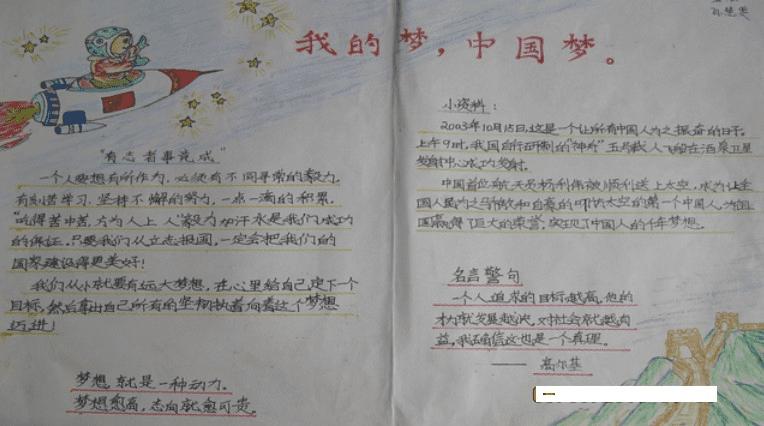 我的梦，中国梦。
"有志者事竟成"
一个人要想有所作为，必须有不同寻常的毅力。
有刻苦学习，坚持不懈的努力，一点一滴的积累。
"吃得苦中苦，方为人上人"毅力加汗水是我们成功
的保证。只要我们从立志报国，一定会把我们的
国家建设得更美好！
我们从小就要有远大梦想，在心里给自己定下一个
目标，然后拿出自己所有的坚韧执着向着这个梦想
迈进！
梦想，就是一种动力。
梦想愈高，志向就愈可贵。
小资料：
2003年10月15日，这是一个让所有中国人为之振奋的日子。
上午9时，我国自行研制的"神舟"五号载人飞船在酒泉卫星
发射中心成功发射。
中国首位航天员杨利伟被顺利送上太空，成为让全
国人民为之骄傲和自豪的叩访太空的第一个中国人，为祖
国赢得了巨大的荣誉，实现了中国人的千年梦想。
名言警句
一个人追求的目标越高，他的
才力就发展越快，对社会就越有
益，我确信这也是一个真理。
——高尔基